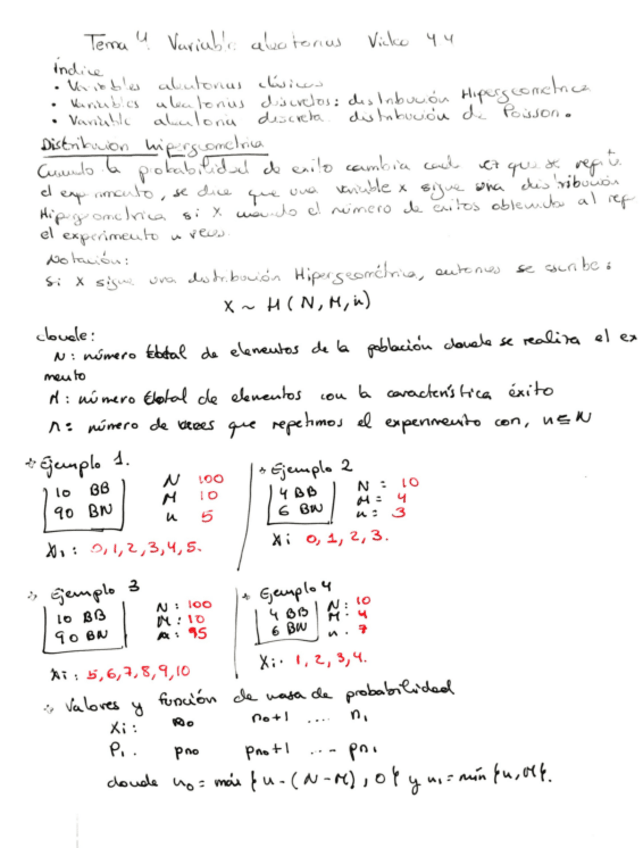 Tema 4 Variables aleatorias Video 4.4
Índice
• Variables aleatorias clásicas
• Variables aleatorias discretas: distribución Hipergeometrica
• Variable aleatoria discreta distribución de Poisson.
Distribución hipergeometrica
Cuando la probabilidad de exito cambia cada vez que se repit
el experimento, se dice que una variable x sigue una distribución
Hipergeometrica si X cuando el número de exitos obtenidos al rep
el experimento n veces.
Notación:
Si X sigue una distribución Hipergeométrica, entonces se escribe:
X ~ H(N, M, n)
donde:
N: número total de elementos de la población donde se realiza el ex
mento
M: número total de elementos con la característica éxito
n: número de veces que repetimos el experimento con, n ∈ N
Ejemplo 1.
10 BB
90 BN
N 100
M 10
n 5
Xi: 0, 1, 2, 3, 4, 5.
Ejemplo 2
4 BB
6 BN
N = 10
M = 4
n = 3
Xi 0, 1, 2, 3.
Ejemplo 3
10 BB
90 BN
N: 100
M: 10
n: 95
Xi: 5, 6, 7, 8, 9, 10
Ejemplo 4
4 BB
6 BN
N: 10
M: 4
n. 7
Xi. 1, 2, 3, 4.
Valores y función de masa de probabilidad
Xi: n0 n0+1 .... n1
Pi. pn0 pn0+1 ... pn1
donde n0 = máx {n - (N - M), 0} y n1 = mín {n, M}.